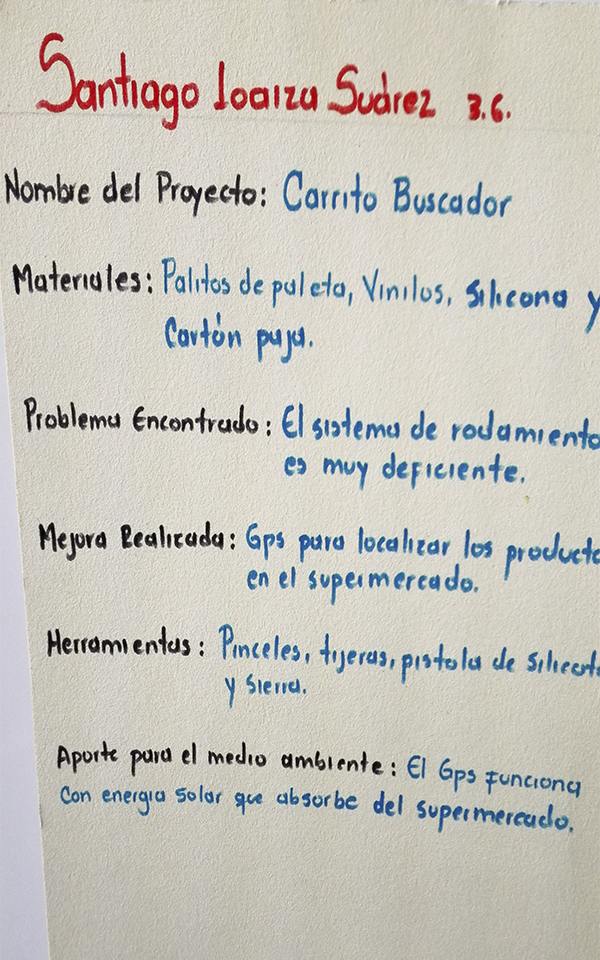 Santiago Loaiza Suárez 3.6.
Nombre del Proyecto: Carrito Buscador
Materiales: Palitos de paleta, Vinilos, Silicona y
Cartón paja.
Problema Encontrado: El sistema de rodamiento
es muy deficiente.
Mejora Realizada: Gps para localizar los producto
en el supermercado.
Herramientas: Pinceles, tijeras, pistola de
y Sierra.
Aporte para el medio ambiente: El Gps funciona
Con energia Solar que absorbe del supermercado.